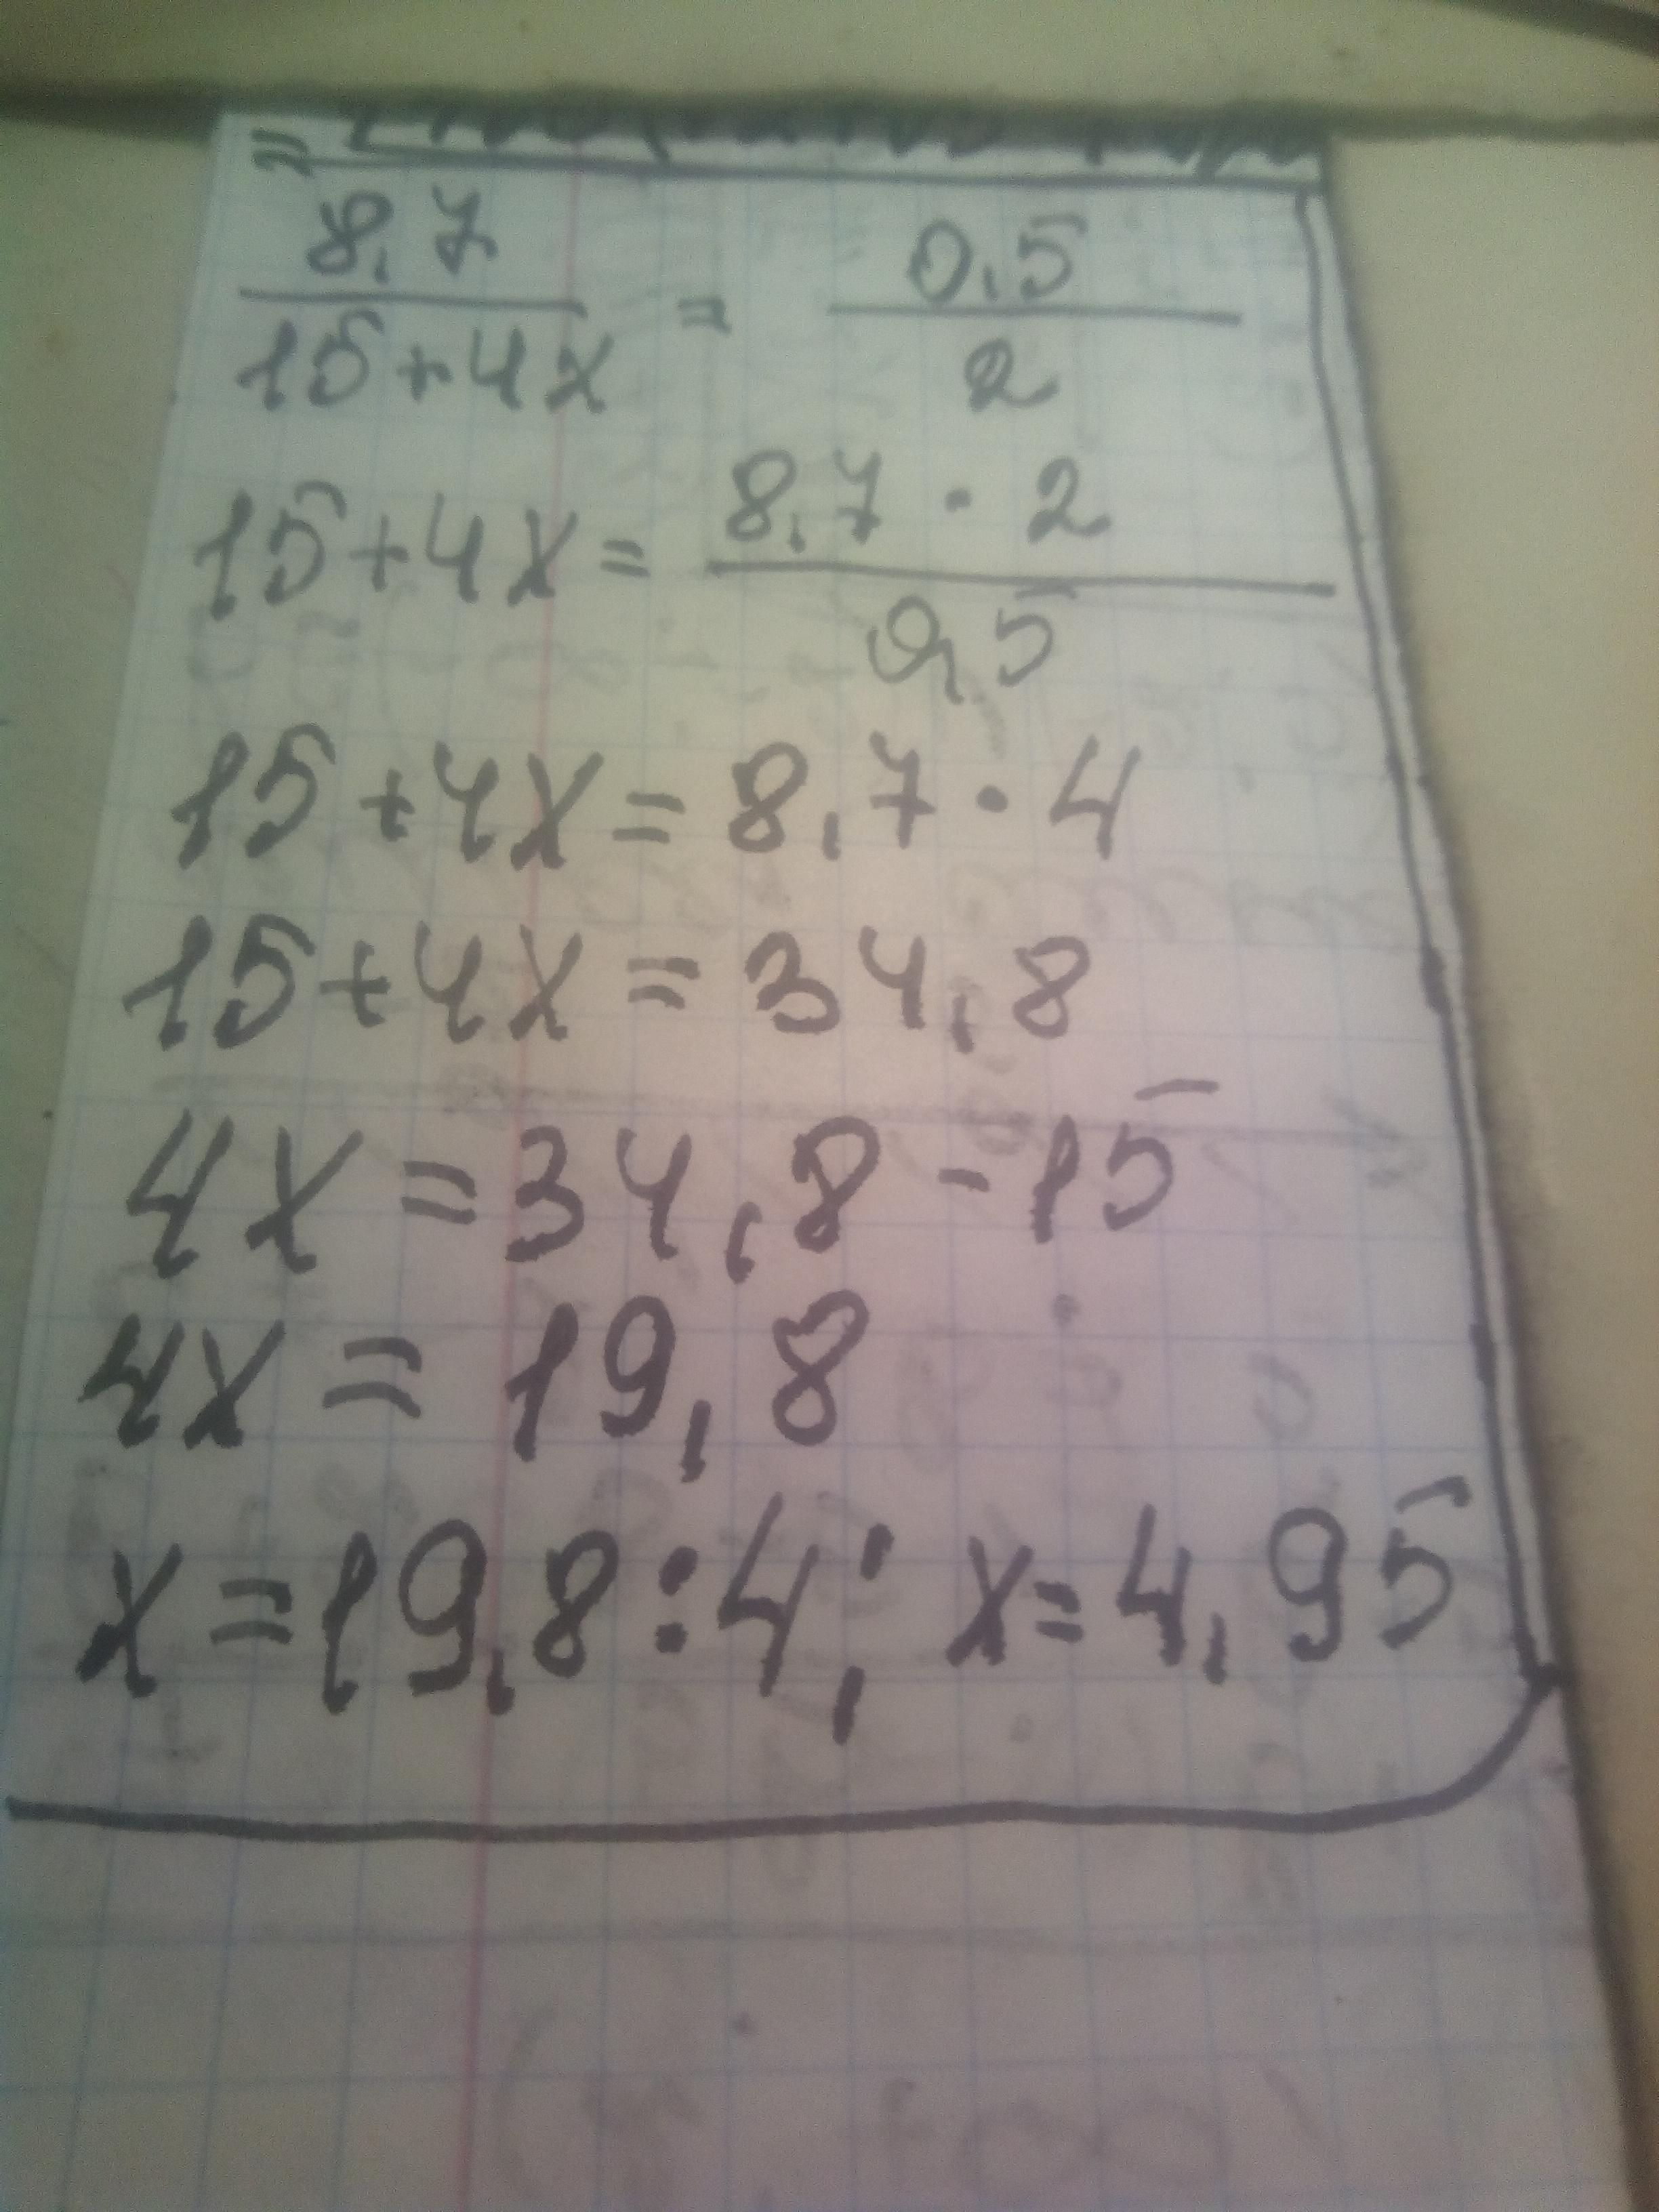 8,7 / 15+4x = 0,5 / 2
15+4x = 8,7 · 2 / 0,5
15+4x = 8,7 · 4
15+4x = 34,8
4x = 34,8 - 15
4x = 19,8
x = 19,8 : 4; x = 4,95